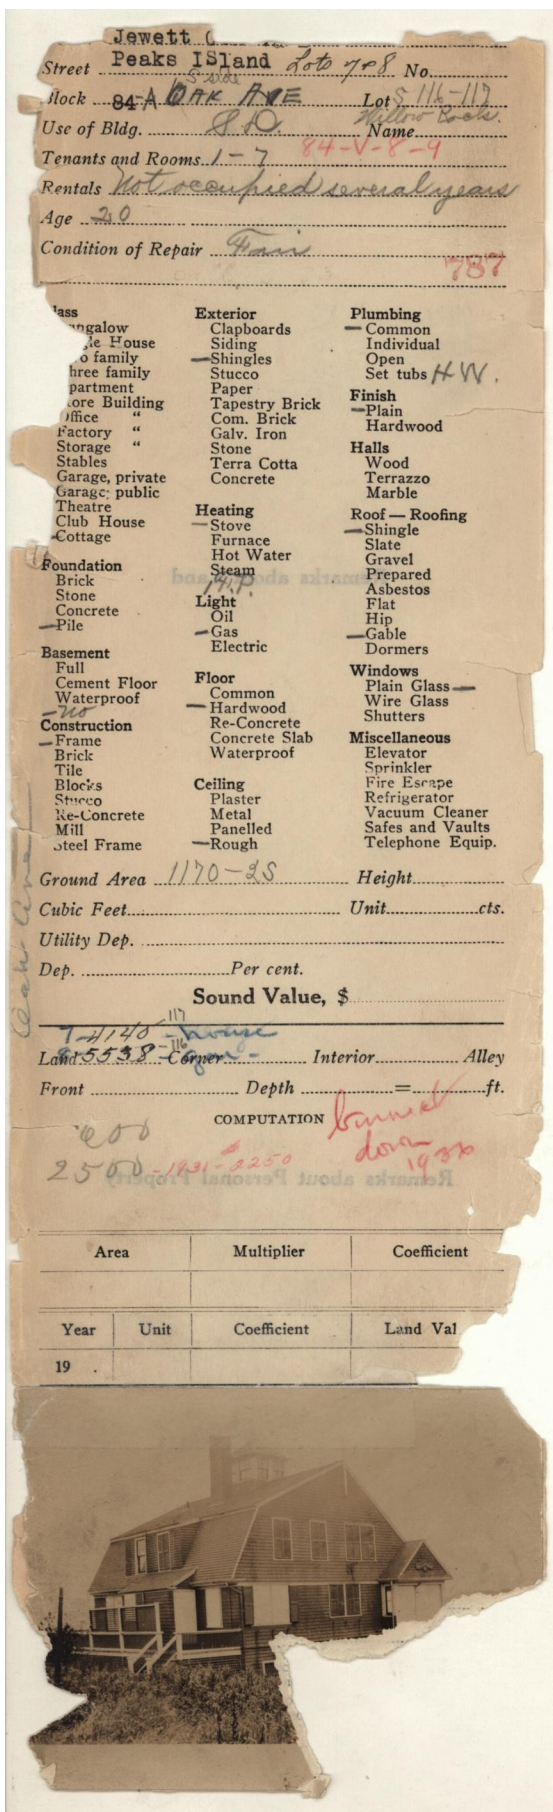 Jewett
Street Peaks ISland Lots 7+8 No.
S side
Block 84-A OAK AVE Lot S 116-117
Use of Bldg. S D. Name Willow Rocks.
Tenants and Rooms 1-7 84-V-8-9
Rentals Not occupied several years
Age 20
Condition of Repair Fair
787
lass
ngalow
le House
o family
hree family
partment
ore Building
Office "
Factory "
Storage "
Stables
Garage, private
Garage; public
Theatre
Club House
-Cottage
Foundation
Brick
Stone
Concrete
-Pile
Basement
Full
Cement Floor
Waterproof
-no
Construction
-Frame
Brick
Tile
Blocks
Stucco
Re-Concrete
Mill
Steel Frame
Exterior
Clapboards
Siding
-Shingles
Stucco
Paper
Tapestry Brick
Com. Brick
Galv. Iron
Stone
Terra Cotta
Concrete
Heating
-Stove
Furnace
Hot Water
Steam
F.P.
Light
Oil
-Gas
Electric
Floor
Common
-Hardwood
Re-Concrete
Concrete Slab
Waterproof
Ceiling
Plaster
Metal
Panelled
-Rough
Plumbing
-Common
Individual
Open
Set tubs H.W.
Finish
-Plain
Hardwood
Halls
Wood
Terrazzo
Marble
Roof — Roofing
-Shingle
Slate
Gravel
Prepared
Asbestos
Flat
Hip
-Gable
Dormers
Windows
Plain Glass-
Wire Glass
Shutters
Miscellaneous
Elevator
Sprinkler
Fire Escape
Refrigerator
Vacuum Cleaner
Safes and Vaults
Telephone Equip.
Oak Ave
Ground Area 1170-2S Height
Cubic Feet Unit cts.
Utility Dep.
Dep. Per cent.
Sound Value, $
117
7-4140-house
116
Land 8-5538- Corner Interior Alley
Front Depth = ft.
COMPUTATION burned
down
1936
600
2500-1931-2250
Remarks about Personal Property
Area Multiplier Coefficient
Year Unit Coefficient Land Val
19 .